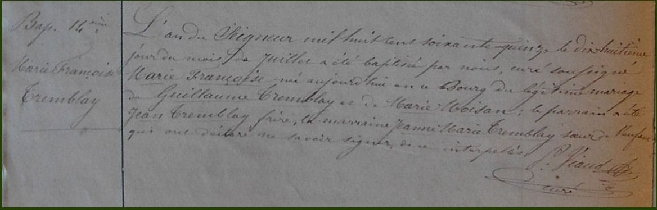 Bap. 14me
Marie Françoise
Tremblay
L'an du Seigneur mil huit cent soixante-quinze le dix-huitième
jour du mois de Juillet a été baptisée par nous, curé soussigné
Marie Françoise née aujourd'hui en ce Bourg du légitime mariage
de Guillaume Tremblay et de Marie Voisan; le parrain a été
Jean Tremblay frère, la marraine Jeanne Marie Tremblay sœur de l'enfant
qui ont déclaré ne savoir signer, de ce interpellés
P. Viaud
curé